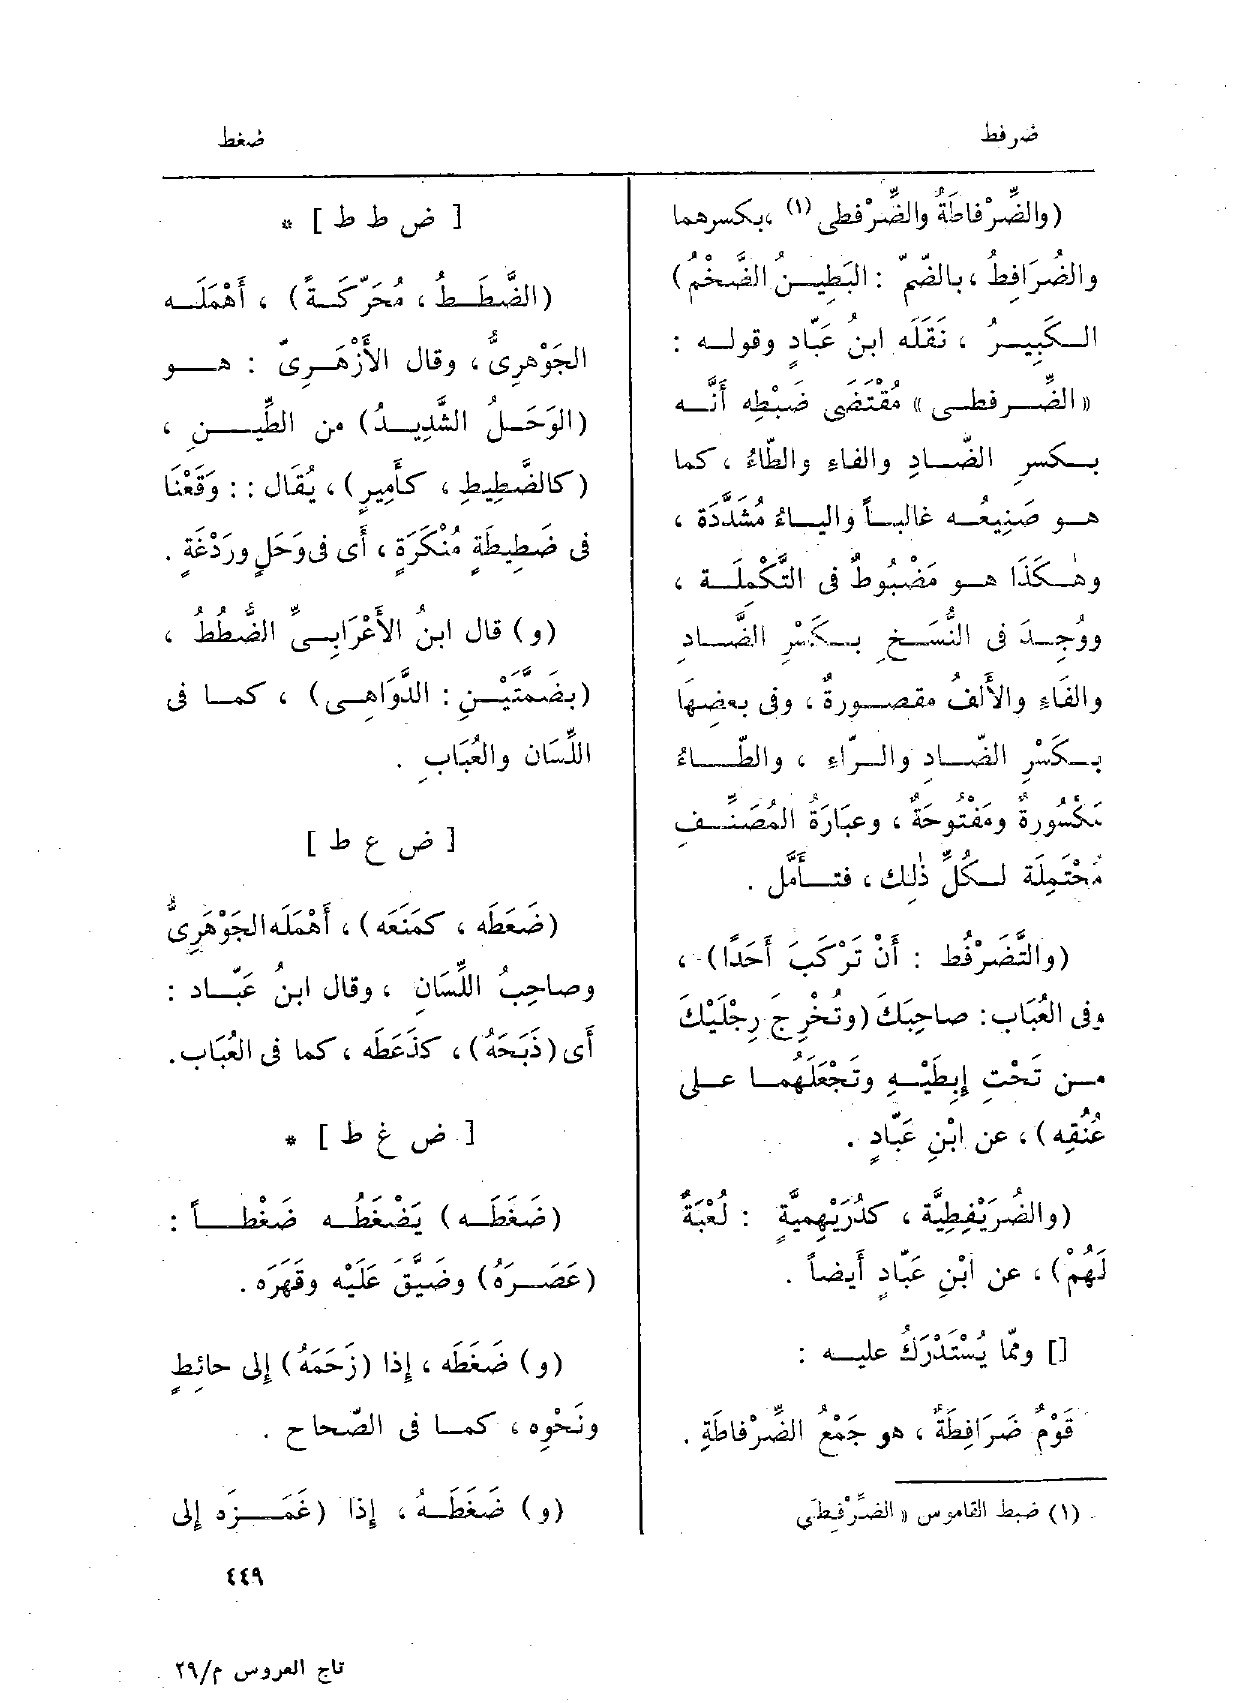 ضرفط
ضغط
(والضِّرْفاطَةُ والضِّرْفطى (١) ،بكسرهما
والضُرَافِطُ ، بالضّمّ : البَطِينُ الضَّخْمُ)
الكَبِيرُ ، نَقَلَه ابنُ عَبّادٍ وقوله :
«الضِّرفطى» مُقْتَضَى ضَبْطِه أَنَّه
بكسرِ الضّادِ والفاءِ والطّاءُ ، كما
هو صَنِيعُه غالباً والياءُ مُشَدَّدَة ،
وهٰكَذَا هو مَضْبُوطٌ فى التَّكْمِلَة ،
ووُجِدَ فى النُّسَخِ بكَسْرِ الضَّادِ
والفَاءِ والأَلفُ مقصورةٌ ، وفى بعضِهَا
بكَسْرِ الضّادِ والرّاءِ ، والطّاءُ
مَكْسُورةٌ ومَفْتُوحَةٌ ، وعِبَارَةُ المُصَنِّفِ
مُحْتَمِلَة لكُلِّ ذٰلِك ، فتأَمَّل .
(والتَّضَرْفُط : أَنْ تَرْكَبَ أَحَدًا) ،
وفى العُبَاب : صاحِبَكَ (وتُخْرِجَ رِجْلَيْكَ
من تَحْتِ إِبطَيْهِ وتَجْعَلَهُما على
عُنُقِه) ، عن ابْنِ عَبّادٍ .
(والضُرَيْفِطِيَّة ، كدُرَيْهِمِيَّةٍ : لُعْبَةٌ
لَهُمْ) ، عن ابْنِ عَبّادٍ أَيضاً .
[] وممّا يُسْتَدْرَكُ عليه :
قَوْمٌ ضَرَافِطَةٌ ، هو جَمْعُ الضِّرْفاطَةِ .
(١) ضبط القاموس « الضِّرْفِطَي
[ ض ط ط ] *
(الضَّطَطُ ، مُحَرّكَةً) ، أَهْمَلَه
الجَوْهرِىُّ ، وقال الأَزْهَرِىّ : هو
(الوَحَلُ الشَّدِيدُ) من الطِّينِ ،
(كالضَّطِيطِ ، كأَمِيرٍ) ، يُقَال : : وَقَعْنَا
فى ضَطِيطَةٍ مُنْكَرَةٍ ، أَى فى وَحَلٍ ورَدْغَةٍ .
(و) قال ابنُ الأَعْرَابِىِّ الضُّطُطُ ،
(بضَمَّتَيْنِ : الدَّوَاهِى) ، كما فى
اللِّسَان والعُبَابِ .
[ ض ع ط ]
(ضَعَطَه ، كمَنَعَه) ، أَهْمَلَه الجَوْهَرِىُّ
وصاحِبُ اللِّسَانِ ، وقال ابنُ عَبّاد :
أَى (ذَبَحَهُ) ، كذَعَطَه ، كما فى العُبَاب.
[ ض غ ط ] *
(ضَغَطَه) يَضْغَطُه ضَغْطاً :
(عَصَرَهُ) وضَيَّقَ عَلَيْه وقَهَرَه .
(و) ضَغَطَه ، إِذا (زَحَمَهُ) إِلى حائِطٍ
ونَحْوِه ، كما فى الصّحاح .
(و) ضَغَطَهُ ، إِذا (غَمَزَه إِلى
٤٤٩
تاج العروس م/٢٩